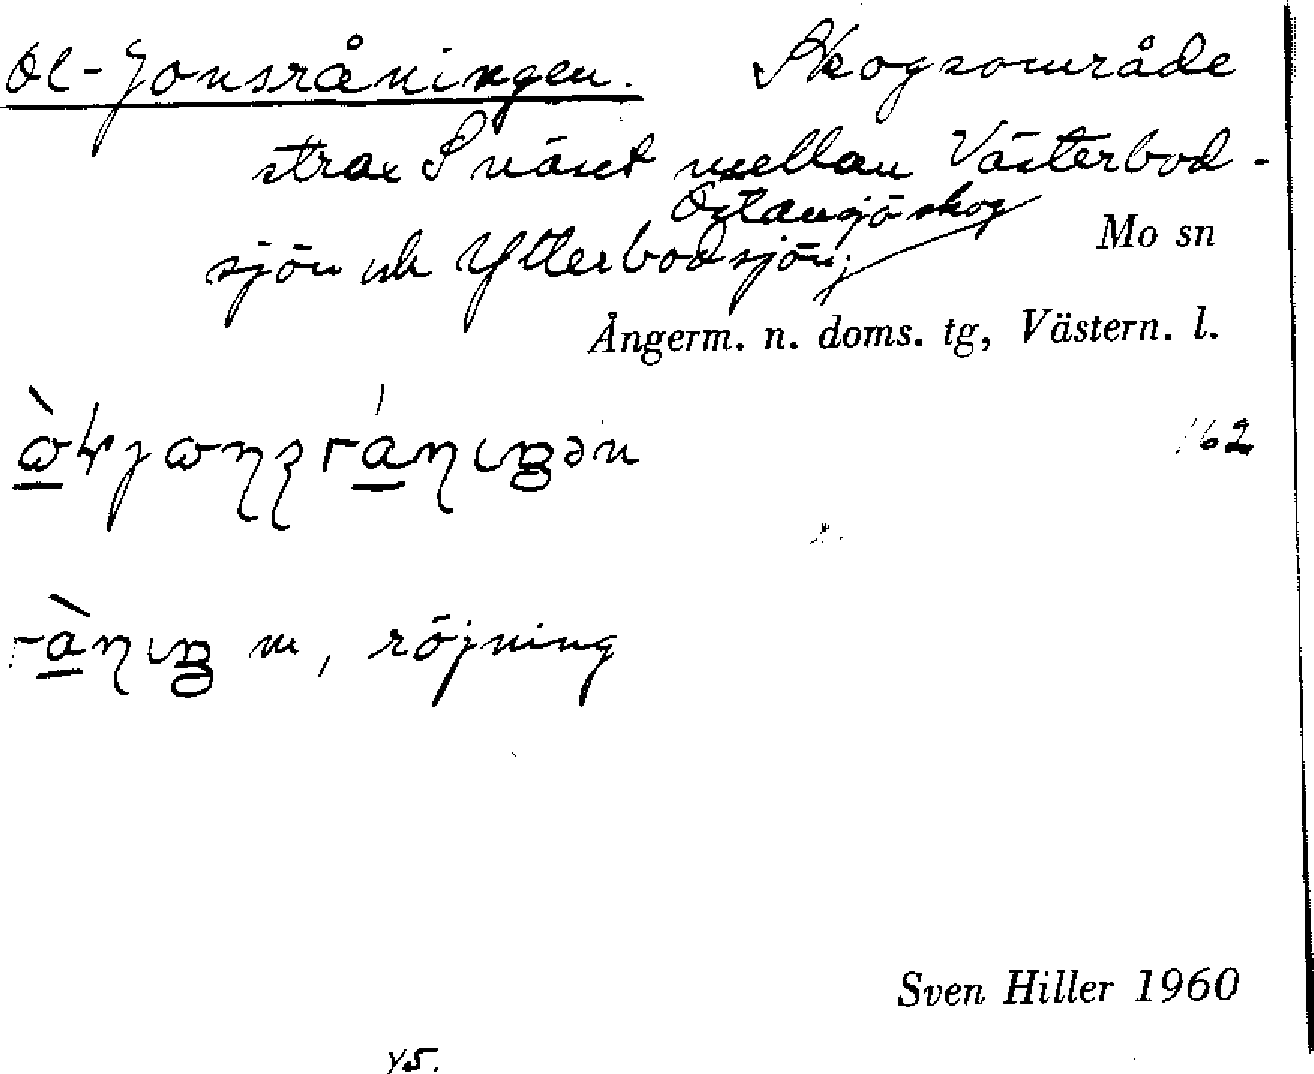 Ol-Jonsråningen. Skogsområde
strax S näset mellan Västerbod-
Östansjö skog
sjön och Ytterbodsjön; Mo sn
Ångerm. n. doms. tg, Västern. l.
162
m, röjning
Sven Hiller 1960